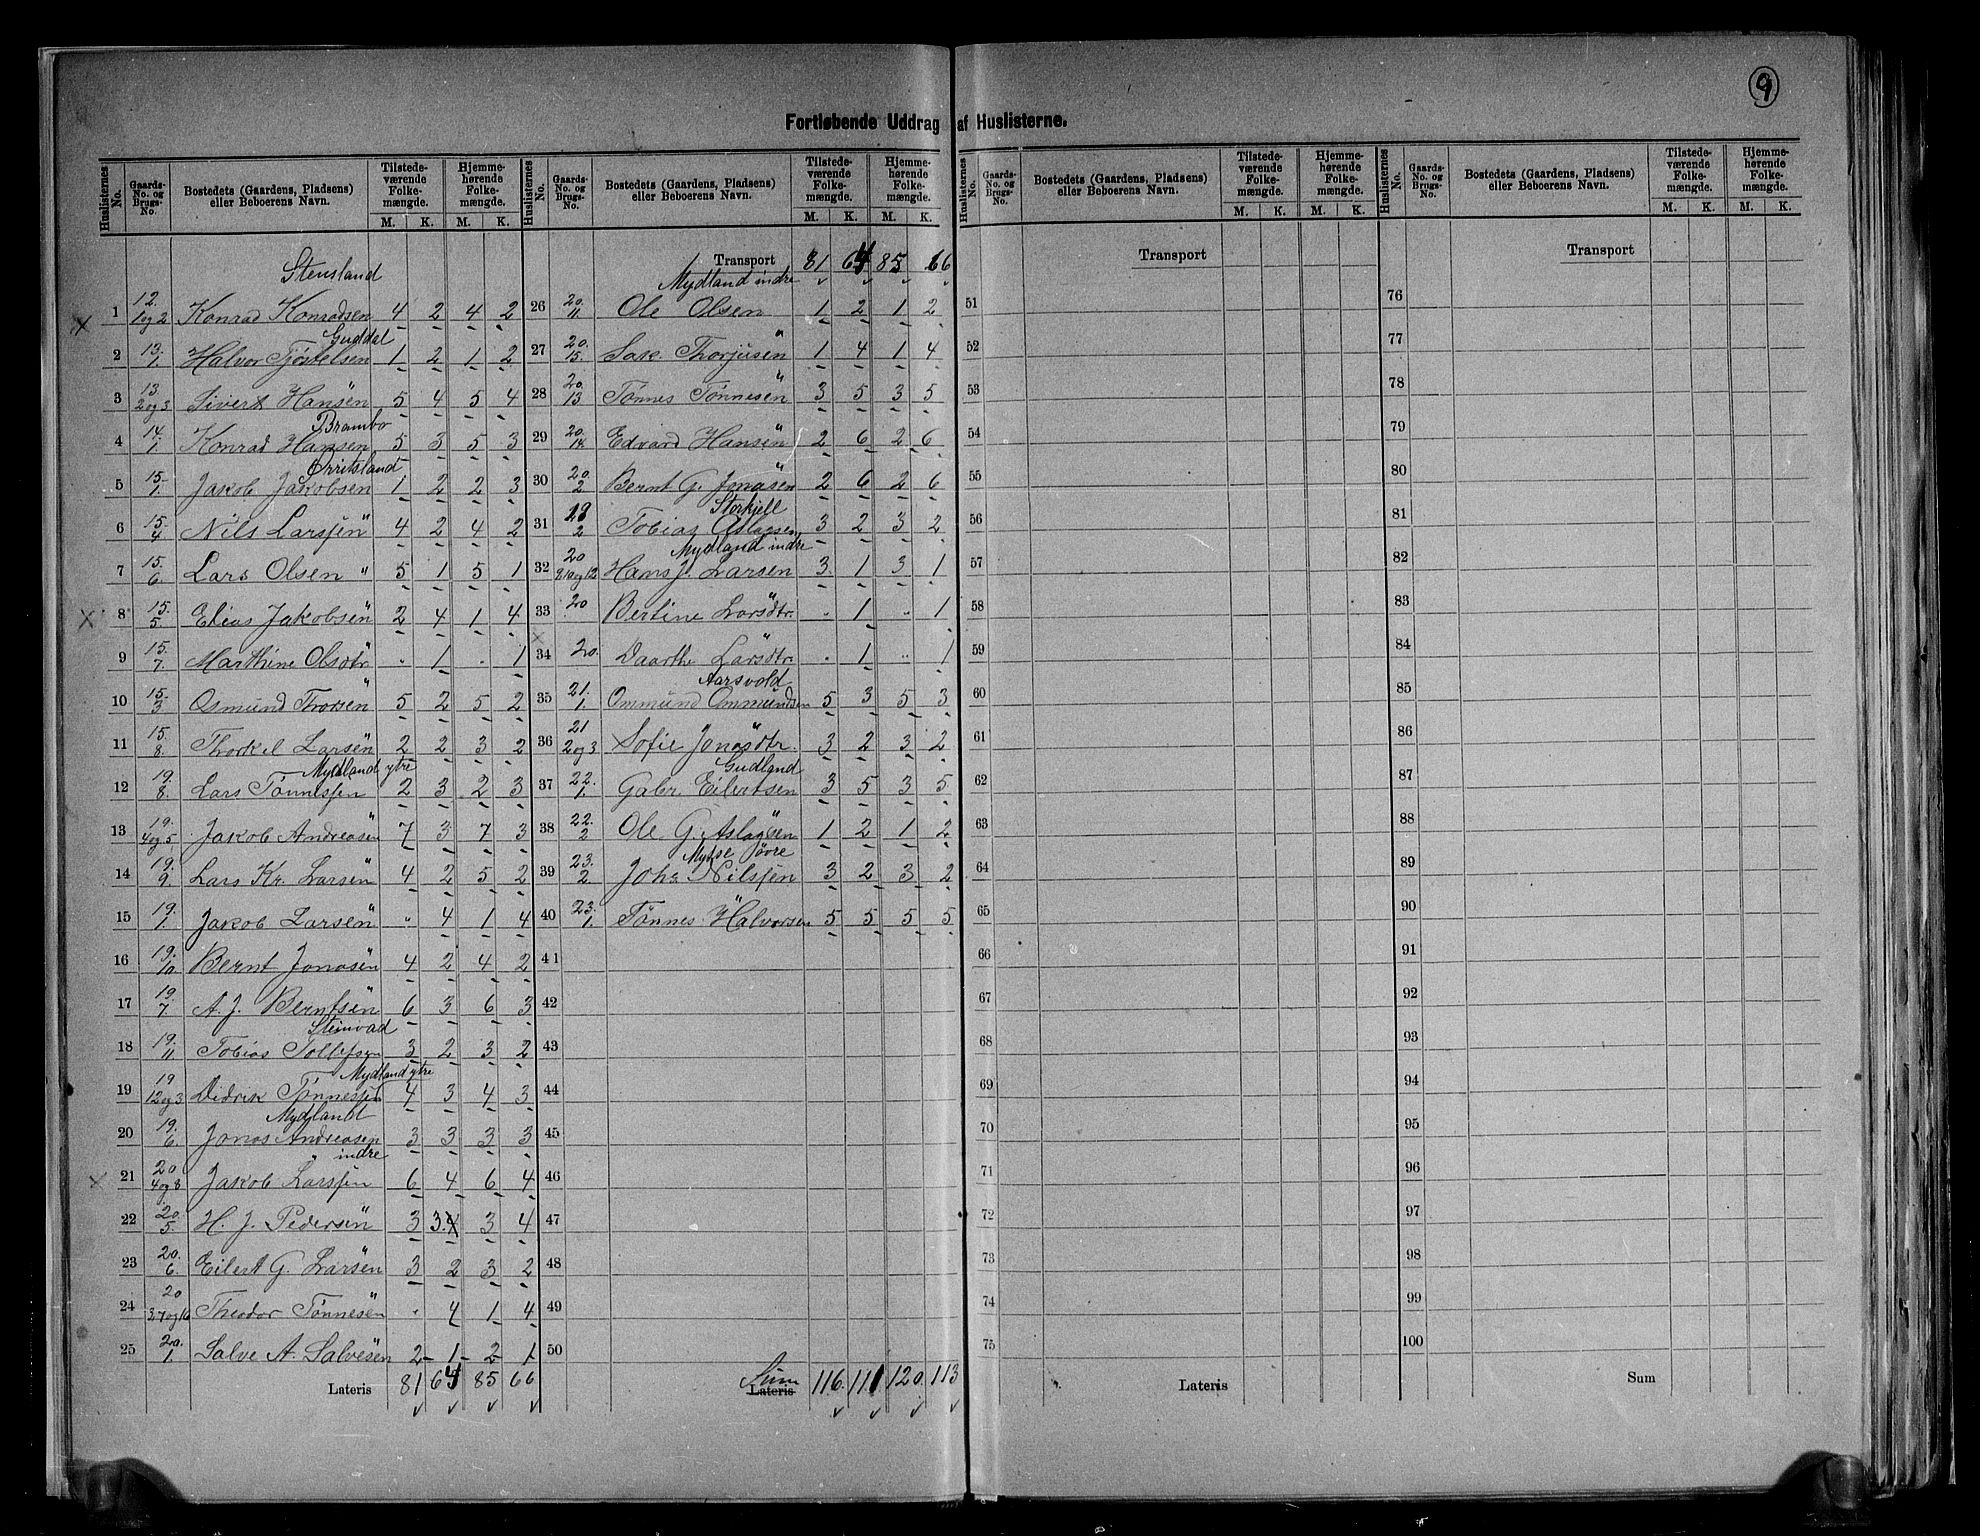 9
Fortløbende Uddrag af Huslisterne.
Huslisternes No. | Gaards-No. og Brugs-No. | Bostedets (Gaardens, Pladsens) eller Beboerens Navn. | Tilstedeværende Folkemængde. M. K. | Hjemmehørende Folkemængde. M. K.
Stensland
1 12. 1og2 Konrad Konradsen 4 2 4 2
Guddal
2 13. 1. Halvor Tjørtelsen 1 2 1 2
3 13 2og3 Sivert Hansen " 5 4 5 4
Brambo
4 14. 1. Konrad Hansen 5 3 5 3
Orritsland
5 15. 1. Jakob Jakobsen 1 2 2 3
6 15. 4 Nils Larssen " 4 2 4 2
7 15. 6. Lars Olsen " 5 1 5 1
8 15. 5 Elias Jakobsen " 2 4 1 4
9 15. 7. Marthine Olsdtr. " . 1 . 1
10 15. 3 Osmund Thorsen " 5 2 5 2
11 15. 8. Thorkel Larsen " 2 2 3 2
Mydland ytre
12 19. 8. Lars Tønnessen 2 3 2 3
13 19. 4og5 Jakob Andreasen " 7 3 7 3
14 19. 9. Lars Kr. Larsen " 4 2 5 2
15 19. 1. Jakob Larsen " " 4 1 4
16 19. 10 Bernt Jonasen " 4 2 4 2
17 19. 7. A. J. Berntsen " 6 3 6 3
Steinvad
18 19. 11 Tobias Tollefsen 3 2 3 2
Mydland ytre
19 19 12og3 Didrik Tønnessen 4 3 4 3
Mydland
20 19. 6. Jonas Andreasen 3 3 3 3
indre
21 20 4og8 Jakob Larssen 6 4 6 4
22 20. 5. H. J. Pedersen " 3 3. 4 3 4
23 20. 6. Eilert G. Larsen " 3 2 3 2
24 20 3,7og16 Theodor Tønnesen " . 4 1 4
25 20. 1. Salve A. Salvesen " 2 1 2 1
Lateris 81 64 85 66
Transport 81 64 85 66
Mydland indre
26 20. 11 Ole Olsen 1 2 1 2
27 20. 15. Sak. Thorjusen " 1 4 1 4
28 20. 13 Tønnes Tønnesen " 3 5 3 5
29 20. 14. Edvard Hansen " 2 6 2 6
30 20. 2 Bernt G. Jonasen " 2 6 2 6
Storkjell
31 19 2 Tobias Aslagsen 3 2 3 2
Mydland indre
32 20 9,10og12 Hans J. Larsen 3 1 3 1
33 20 Bertine Larsdtr. " . 1 " 1
34 20. Daarthe Larsdtr. " . 1 " 1
Aarsvold
35 21. 1. Ommund Ommundsen 5 3 5 3
36 21 2og3 Sofie Jonasdtr. " 3 2 3 2
Gudland
37 22. 1. Gabr. Eilertsen 3 5 3 5
38 22. 2 Ole G. Aslagsen " 1 2 1 2
Mysse øvre
39 23. 2 Johs Nilssen 3 2 3 2
40 23. 1. Tønnes Halvorsen " 5 5 5 5
41
42
43
44
45
46
47
48
49
50
Lateris Sum 116. 111 120. 113
Huslisternes No. | Gaards-No. og Brugs-No. | Bostedets (Gaardens, Pladsens) eller Beboerens Navn. | Tilstedeværende Folkemængde. M. K. | Hjemmehørende Folkemængde. M. K.
Transport
51
52
53
54
55
56
57
58
59
60
61
62
63
64
65
66
67
68
69
70
71
72
73
74
75
Lateris
Transport
76
77
78
79
80
81
82
83
84
85
86
87
88
89
90
91
92
93
94
95
96
97
98
99
100
Sum